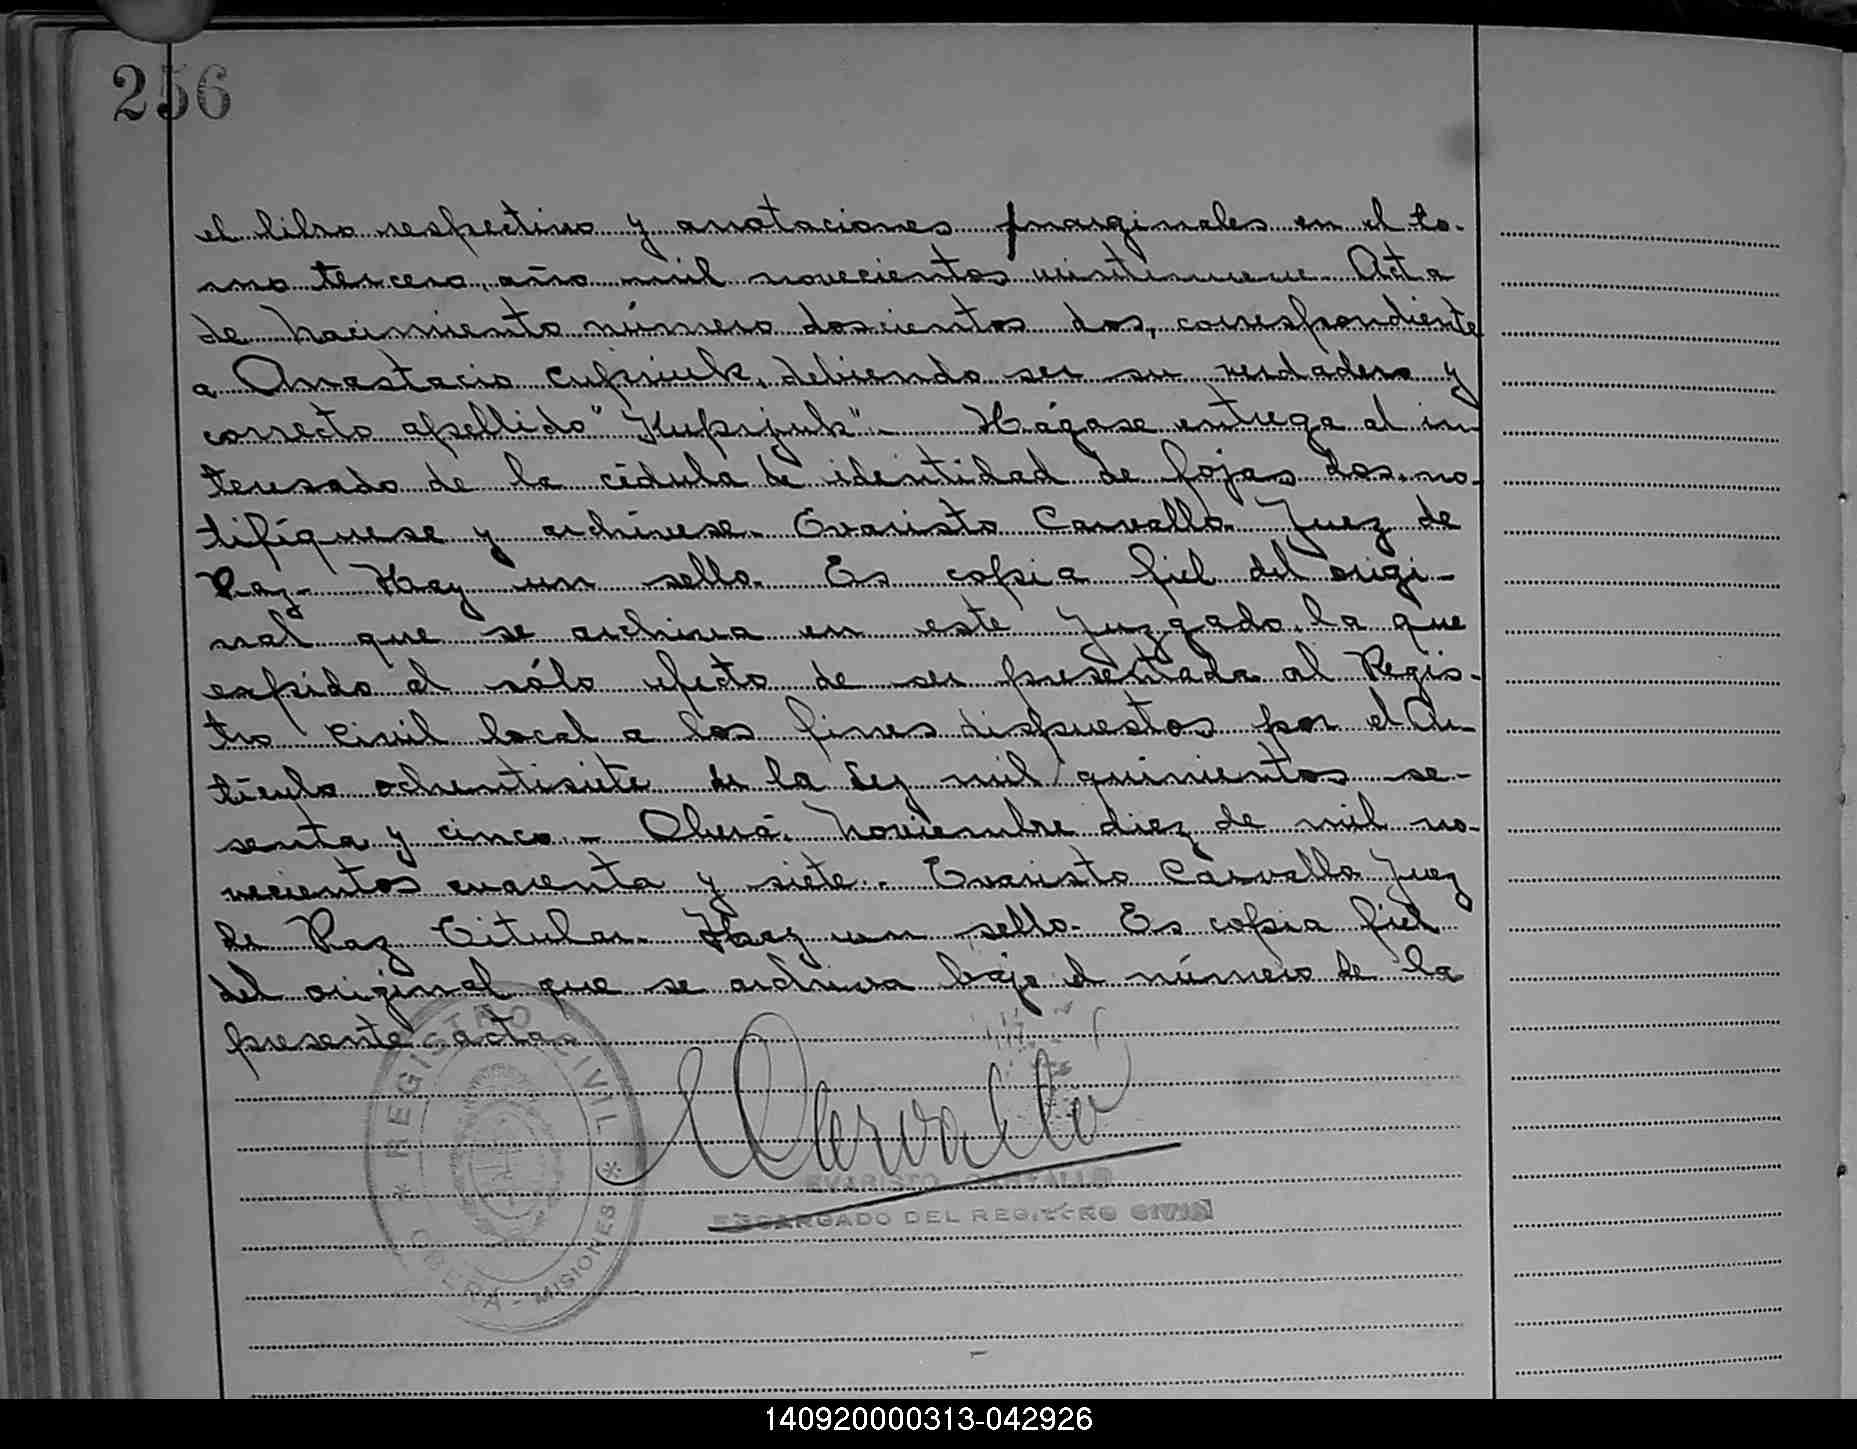 256
el libro respectivo y anotaciones marginales en el to-
mo tercero, año mil novecientos vintinueve. Acta
de Nacimiento número doscientos dos, correspondiente
a Anastacio Cupriuk, debiendo ser su verdadero y
correcto apellido "Kuprijuk".- Hágase entrega al in-
teresado de la cédula de identidad de fojas dos, no-
tifíquese y archívese. Evaristo Carvallo. Juez de
Paz.- Hay un sello. Es copia fiel del origi-
nal que se archiva en este Juzgado, la que
expido al sólo efecto de ser presentada al Regis-
tro Civil local a los fines dispuestos por el Ar-
tículo ochentisiete de la Ley mil quinientos se-
senta y cinco.- Oberá, Noviembre diez de mil no-
vecientos cuarenta y siete.- Evaristo Carvallo Juez
de Paz Titular. Hay un sello. Es copia fiel
del original que se archiva bajo el número de la
presente acta.
REGISTRO CIVIL
OBERÁ - MISIONES
ECarvallo
EVARISTO CARVALLO
ENCARGADO DEL REGISTRO CIVIL
140920000313-042926